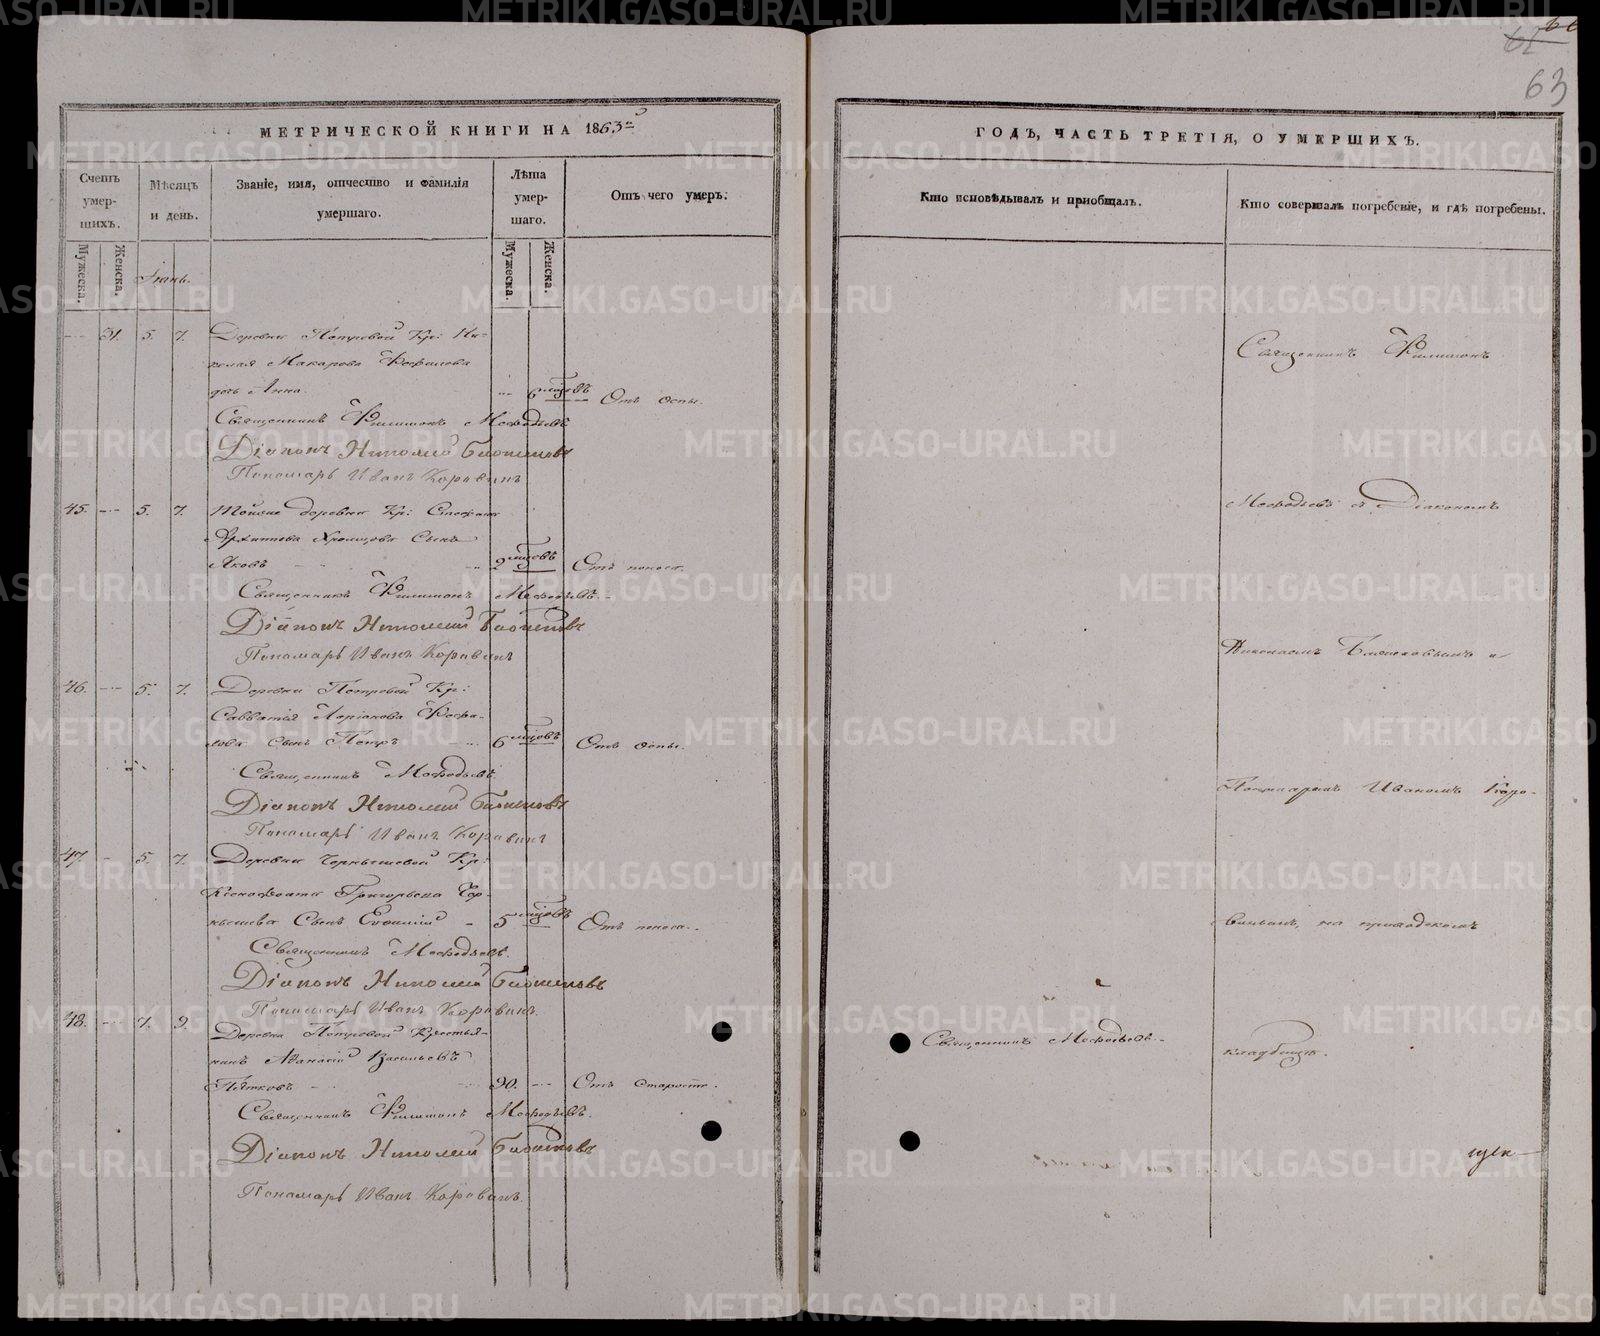 63
МЕТРИЧЕСКОЙ КНИГИ НА 1863й
ГОДЪ, ЧАСТЬ ТРЕТІЯ, О УМЕРШИХЪ.
Счетъ умер-шихъ.
Мужеска.
Женска.
Мѣсяцъ и день.
Званіе, имя, отчество и фамилія умершаго.
Лѣта умер-шаго.
Мужеска.
Женска.
Отъ чего умеръ.
Кто исповѣдывалъ и пріобщалъ.
Кто совершалъ погребеніе, и гдѣ погребены.
Іюнь.
31. 5. 7. Деревни Петровой Кр:
Макарова
дочь Анна. 6 мцовъ Отъ оспы.
Священникъ Филимонъ Мефодьевъ
Діаконъ Николай
Пономарь Иванъ Коровинъ
45. 5. 7. Тойже деревни Кр:
Архиппова Сынъ
Яковъ 2 мцовъ Отъ поноса.
Священникъ Филимонъ Мефодьевъ.
Діаконъ Николай
Пономарь Иванъ Коровинъ
46. 5. 7. Деревни Петровой Кр:
Савватія Ларіонова
Сынъ Петръ 6 мцовъ Отъ оспы.
Священникъ Мефодьевъ
Діаконъ Николай
Пономарь Иванъ Коровинъ
47. 5. 7. Деревни Чернышевой Кр:
Ксенофонта Григорьева Чер-
нышева Сынъ Евфимій 5 мцовъ Отъ поноса.
Священникъ Мефодьевъ.
Діаконъ Николай
Пономарь Иванъ Коровинъ.
48. 7. 9. Деревни Петровой Крестья-
нинъ Аѳанасій Васильевъ
Пятковъ 90. Отъ старости.
Священникъ Филимонъ Мефодьевъ.
Діаконъ Николай
Пономарь Иванъ Коровинъ.
Священникъ Мефодьевъ.
Священникъ Филимонъ
Мефодьевъ съ Діакономъ
Николаемъ и
Пономаремъ Иваномъ Коро-
винымъ, на приходскомъ
кладбищѣ.
METRIKI.GASO-URAL.RU